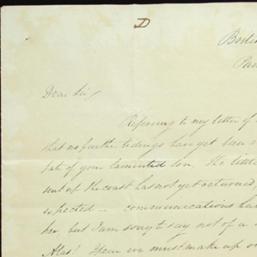 D
Dear Sir,
Referring to my letter of
that no further tidings have yet been
fate of your lamented son. The little
sent up the coast has not yet returned,
expected — communications have
her, but I am sorry to say not of a
Alas! I fear we must make up our